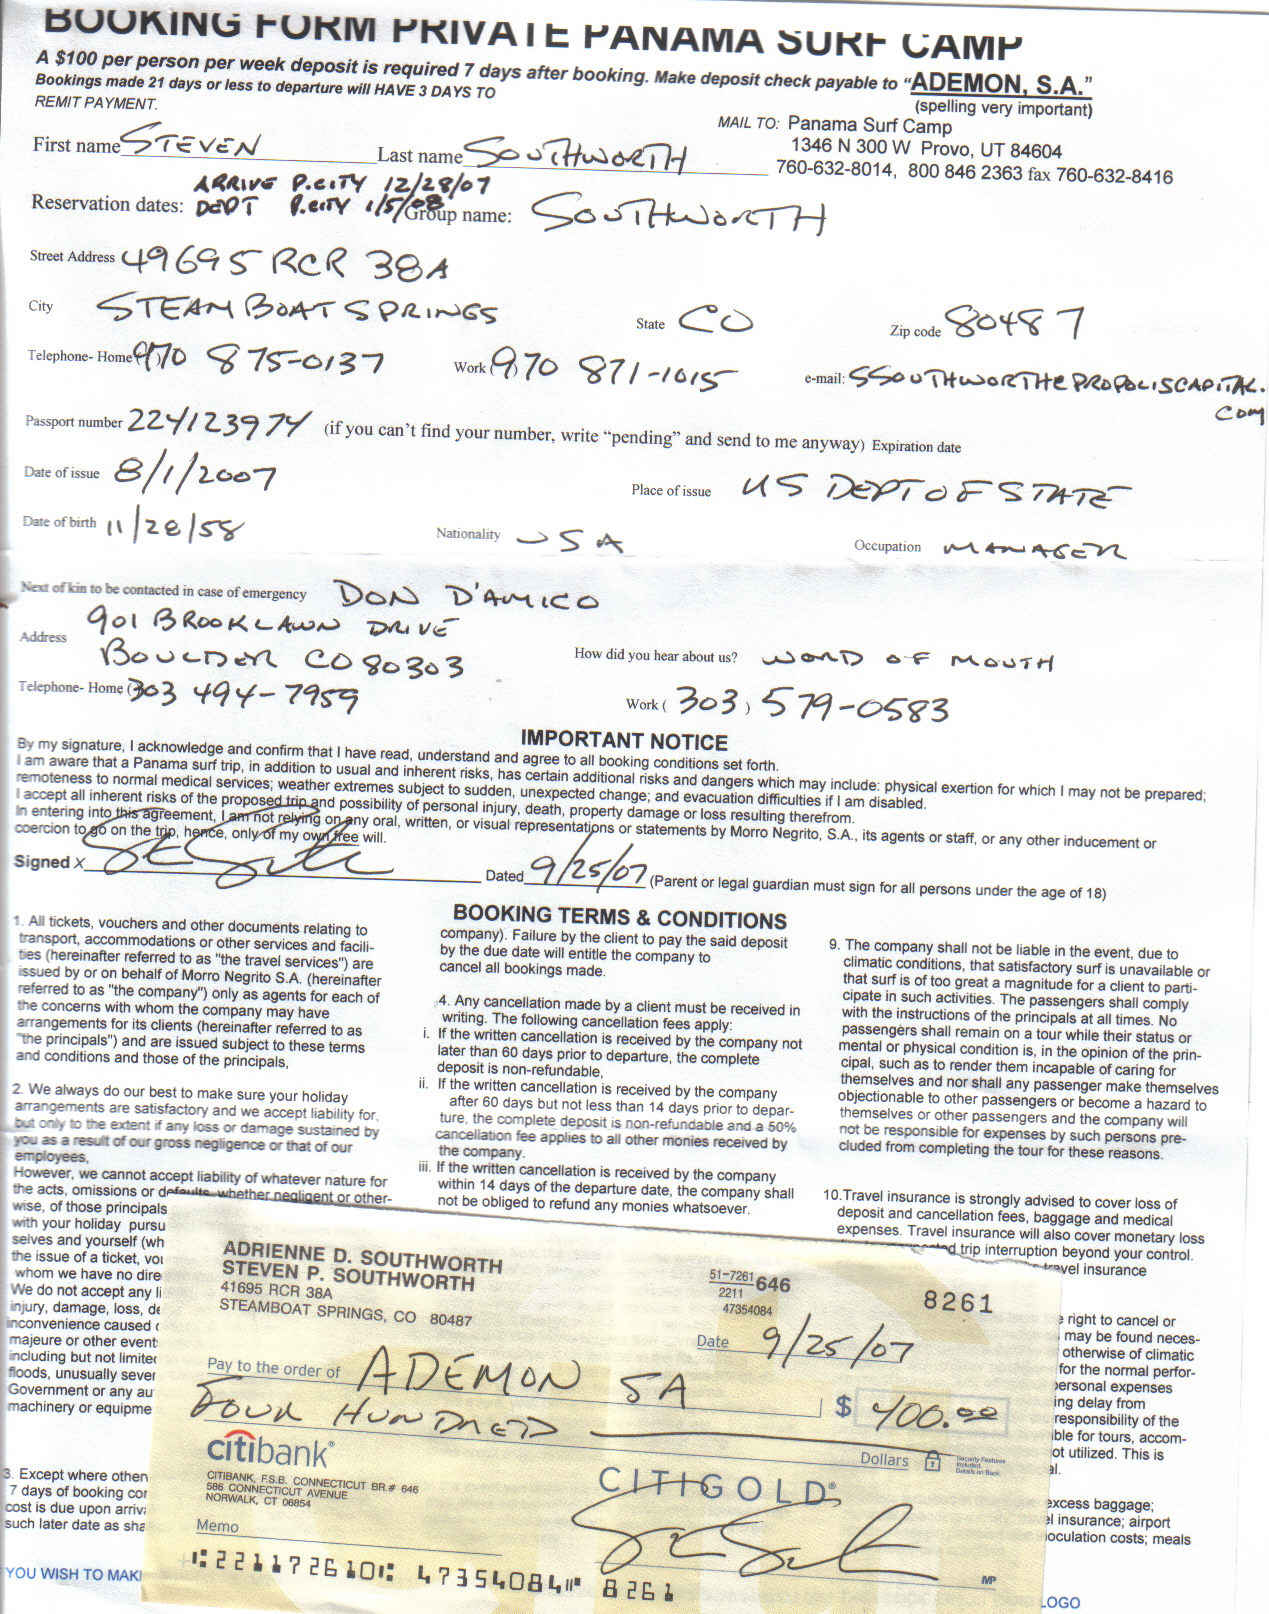 BOOKING FORM PRIVATE PANAMA SURF CAMP
A $100 per person per week deposit is required 7 days after booking. Make deposit check payable to "ADEMON, S.A."
Bookings made 21 days or less to departure will HAVE 3 DAYS TO
(spelling very important)
REMIT PAYMENT.
MAIL TO: Panama Surf Camp
1346 N 300 W Provo, UT 84604
760-632-8014, 800 846 2363 fax 760-632-8416
First name STEVEN Last name SOUTHWORTH
ARRIVE P.CITY 12/28/07
Reservation dates: DEPT P.CITY 1/5/08 Group name: SOUTHWORTH
Street Address 49695 RCR 38A
City STEAMBOAT SPRINGS State CO Zip code 80487
Telephone- Home (970 875-0137 Work (970 871-1015 e-mail: SSOUTHWORTH@PROPOLISCAPITAL.
COM
Passport number 224123974 (if you can't find your number, write "pending" and send to me anyway) Expiration date
Date of issue 8/1/2007 Place of issue US DEPT OF STATE
Date of birth 11/28/58 Nationality USA Occupation MANAGER
Next of kin to be contacted in case of emergency DON D'AMICO
901 BROOKLAWN DRIVE
Address BOULDER CO 80303 How did you hear about us? WORD OF MOUTH
Telephone- Home (303 494-7959 Work ( 303 ) 579-0583
IMPORTANT NOTICE
By my signature, I acknowledge and confirm that I have read, understand and agree to all booking conditions set forth.
I am aware that a Panama surf trip, in addition to usual and inherent risks, has certain additional risks and dangers which may include: physical exertion for which I may not be prepared;
remoteness to normal medical services; weather extremes subject to sudden, unexpected change; and evacuation difficulties if I am disabled.
I accept all inherent risks of the proposed trip and possibility of personal injury, death, property damage or loss resulting therefrom.
In entering into this agreement, I am not relying on any oral, written, or visual representations or statements by Morro Negrito, S.A., its agents or staff, or any other inducement or
coercion to go on the trip, hence, only of my own free will.
Signed X Dated 9/25/07 (Parent or legal guardian must sign for all persons under the age of 18)
BOOKING TERMS & CONDITIONS
1. All tickets, vouchers and other documents relating to
transport, accommodations or other services and facili-
ties (hereinafter referred to as "the travel services") are
issued by or on behalf of Morro Negrito S.A. (hereinafter
referred to as "the company") only as agents for each of
the concerns with whom the company may have
arrangements for its clients (hereinafter referred to as
"the principals") and are issued subject to these terms
and conditions and those of the principals,
2. We always do our best to make sure your holiday
arrangements are satisfactory and we accept liability for,
but only to the extent if any loss or damage sustained by
you as a result of our gross negligence or that of our
employees,
However, we cannot accept liability of whatever nature for
the acts, omissions or defaults, whether negligent or other-
wise, of those principals
with your holiday pursu
selves and yourself (wh
the issue of a ticket, vou
whom we have no dire
We do not accept any li
injury, damage, loss, de
inconvenience caused
majeure or other event
including but not limited
floods, unusually sever
Government or any au
machinery or equipme
3. Except where other
7 days of booking con
cost is due upon arriva
such later date as sha
YOU WISH TO MAK
company). Failure by the client to pay the said deposit
by the due date will entitle the company to
cancel all bookings made.
4. Any cancellation made by a client must be received in
writing. The following cancellation fees apply:
i. If the written cancellation is received by the company not
later than 60 days prior to departure, the complete
deposit is non-refundable,
ii. If the written cancellation is received by the company
after 60 days but not less than 14 days prior to depar-
ture, the complete deposit is non-refundable and a 50%
cancellation fee applies to all other monies received by
the company.
iii. If the written cancellation is received by the company
within 14 days of the departure date, the company shall
not be obliged to refund any monies whatsoever.
9. The company shall not be liable in the event, due to
climatic conditions, that satisfactory surf is unavailable or
that surf is of too great a magnitude for a client to parti-
cipate in such activities. The passengers shall comply
with the instructions of the principals at all times. No
passengers shall remain on a tour while their status or
mental or physical condition is, in the opinion of the prin-
cipal, such as to render them incapable of caring for
themselves and nor shall any passenger make themselves
objectionable to other passengers or become a hazard to
themselves or other passengers and the company will
not be responsible for expenses by such persons pre-
cluded from completing the tour for these reasons.
10.Travel insurance is strongly advised to cover loss of
deposit and cancellation fees, baggage and medical
expenses. Travel insurance will also cover monetary loss
trip interruption beyond your control.
travel insurance
right to cancel or
may be found neces-
otherwise of climatic
for the normal perfor-
personal expenses
ing delay from
responsibility of the
ble for tours, accom-
ot utilized. This is
al.
excess baggage;
el insurance; airport
oculation costs; meals
LOGO
ADRIENNE D. SOUTHWORTH
STEVEN P. SOUTHWORTH
41695 RCR 38A
STEAMBOAT SPRINGS, CO 80487
51-7261 646
2211
47354084
8261
Date 9/25/07
Pay to the order of ADEMON SA $ 400.00
FOUR HUNDRED Dollars
Security Features
Included.
Details on Back.
citibank®
CITIBANK, F.S.B. CONNECTICUT BR.# 646
586 CONNECTICUT AVENUE
NORWALK, CT 06854
CITIGOLD®
Memo
MP
⑆221172610⑆ 47354084⑈ 8261